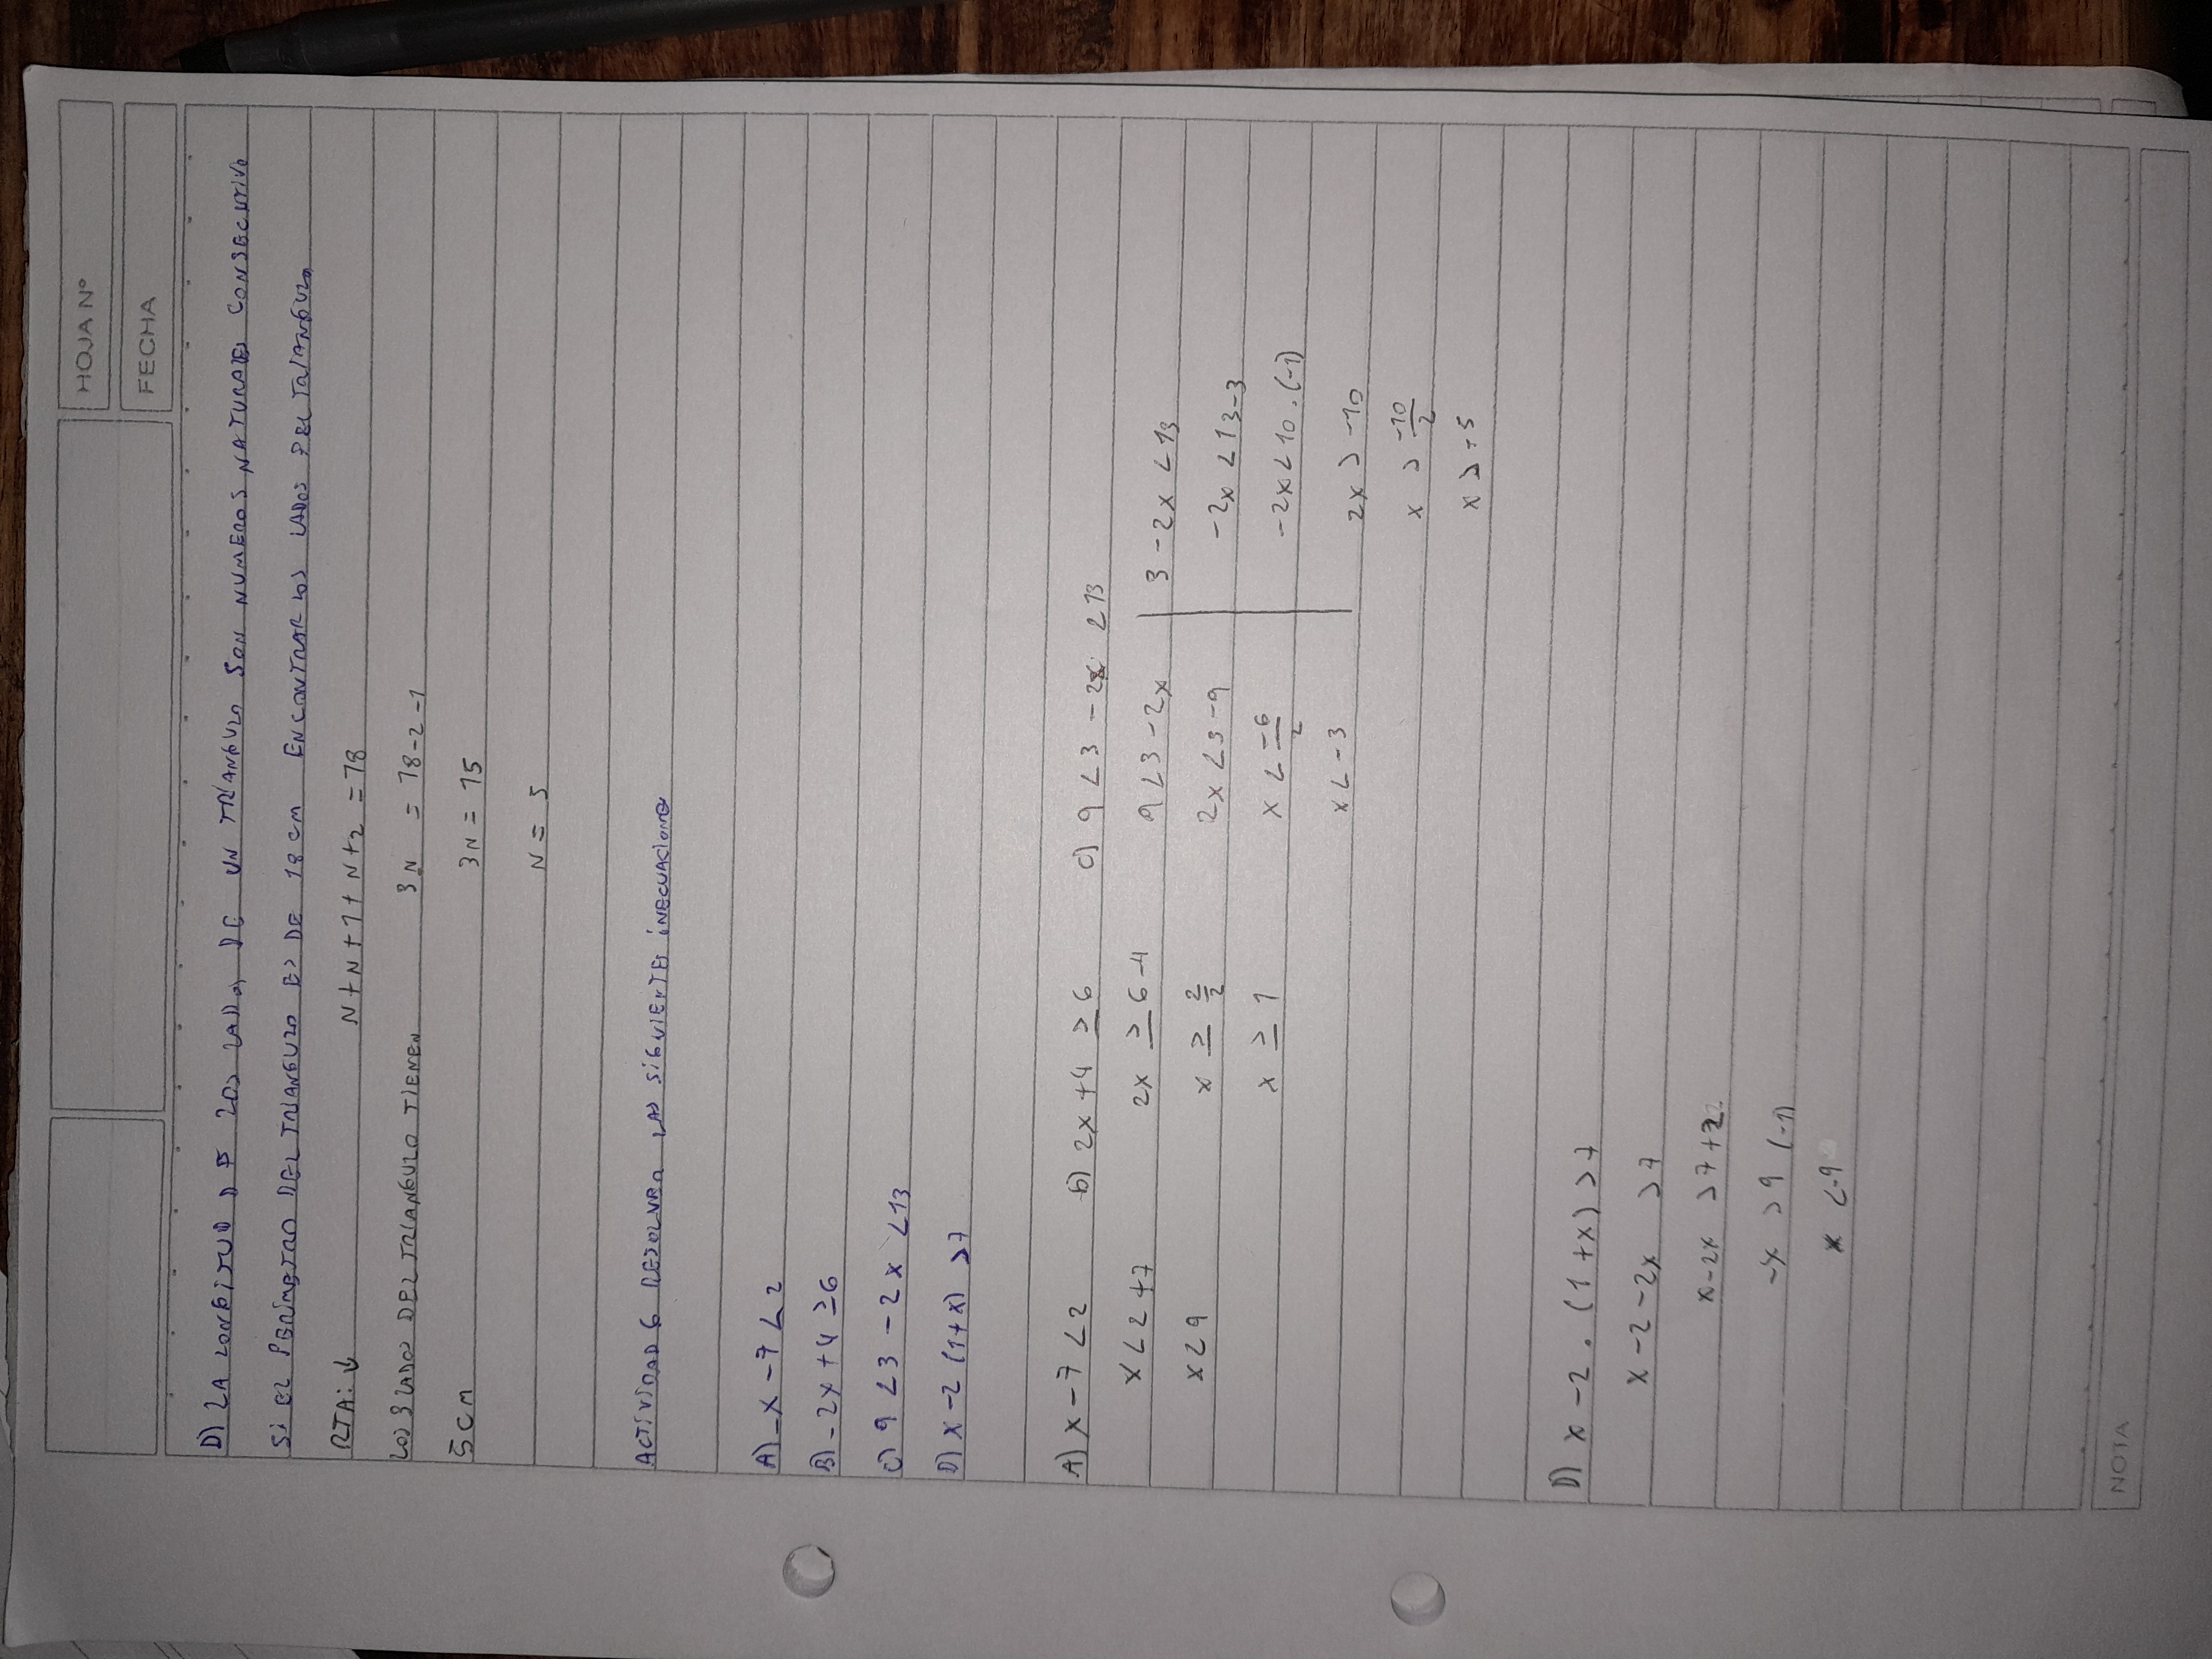 HOJA Nº
FECHA
D) LA LONGITUD DE LOS LADOS DE UN TRIANGULO SON NUMEROS NATURALES CONSECUTIVO
SI EL PERIMETRO DEL TRIANGULO ES DE 18 CM ENCONTRAR LOS LADOS DEL TRIANGULO
RTA: ↓ N+N+1+N+2=18
LOS 3 LADOS DEL TRIANGULO TIENEN 3N = 18-2-1
5CM 3N = 15
N = 5
ACTIVIDAD 6 RESOLVER LAS SIGUIENTES INECUACIONES
A) -X-7<2
B) -2X+4≥6
C) 9<3-2X<13
D) X-2(1+X)>7
A) X-7<2 b) 2X+4≥6 c) 9<3-2x<13
X<2+7 2X≥6-4 9<3-2X | 3-2X<13
X<9 X≥2/2 2X<3-9 -2X<13-3
X≥1 X<-6/2 -2X<10.(-1)
X<-3 2X>-10
X>-10/2
X>-5
D) X-2.(1+X)>7
X-2-2X>7
X-2X>7+2
-X>9(-1)
X<-9
NOTA